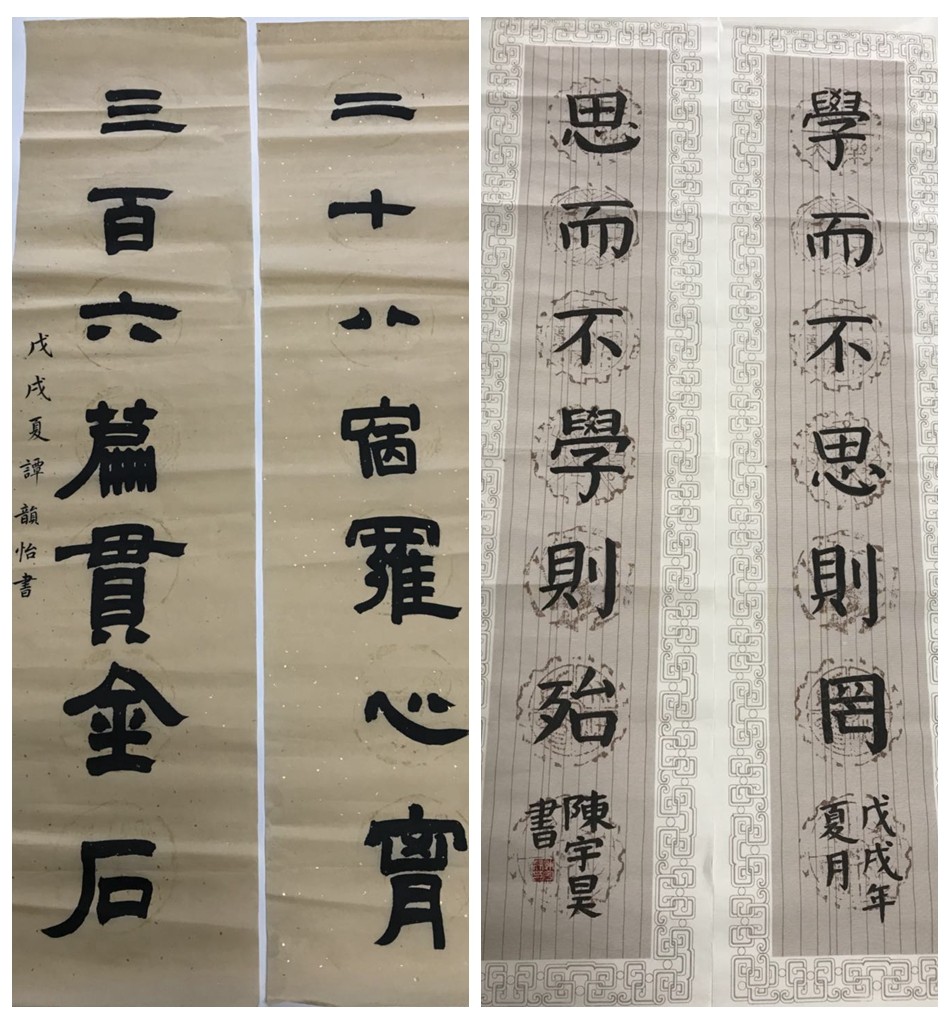 二十八宿羅心胷
三百六篇貫金石
戊戌夏譚韻怡書
學而不思則罔
戊戌年
夏月
思而不學則殆
陳宇昊
書